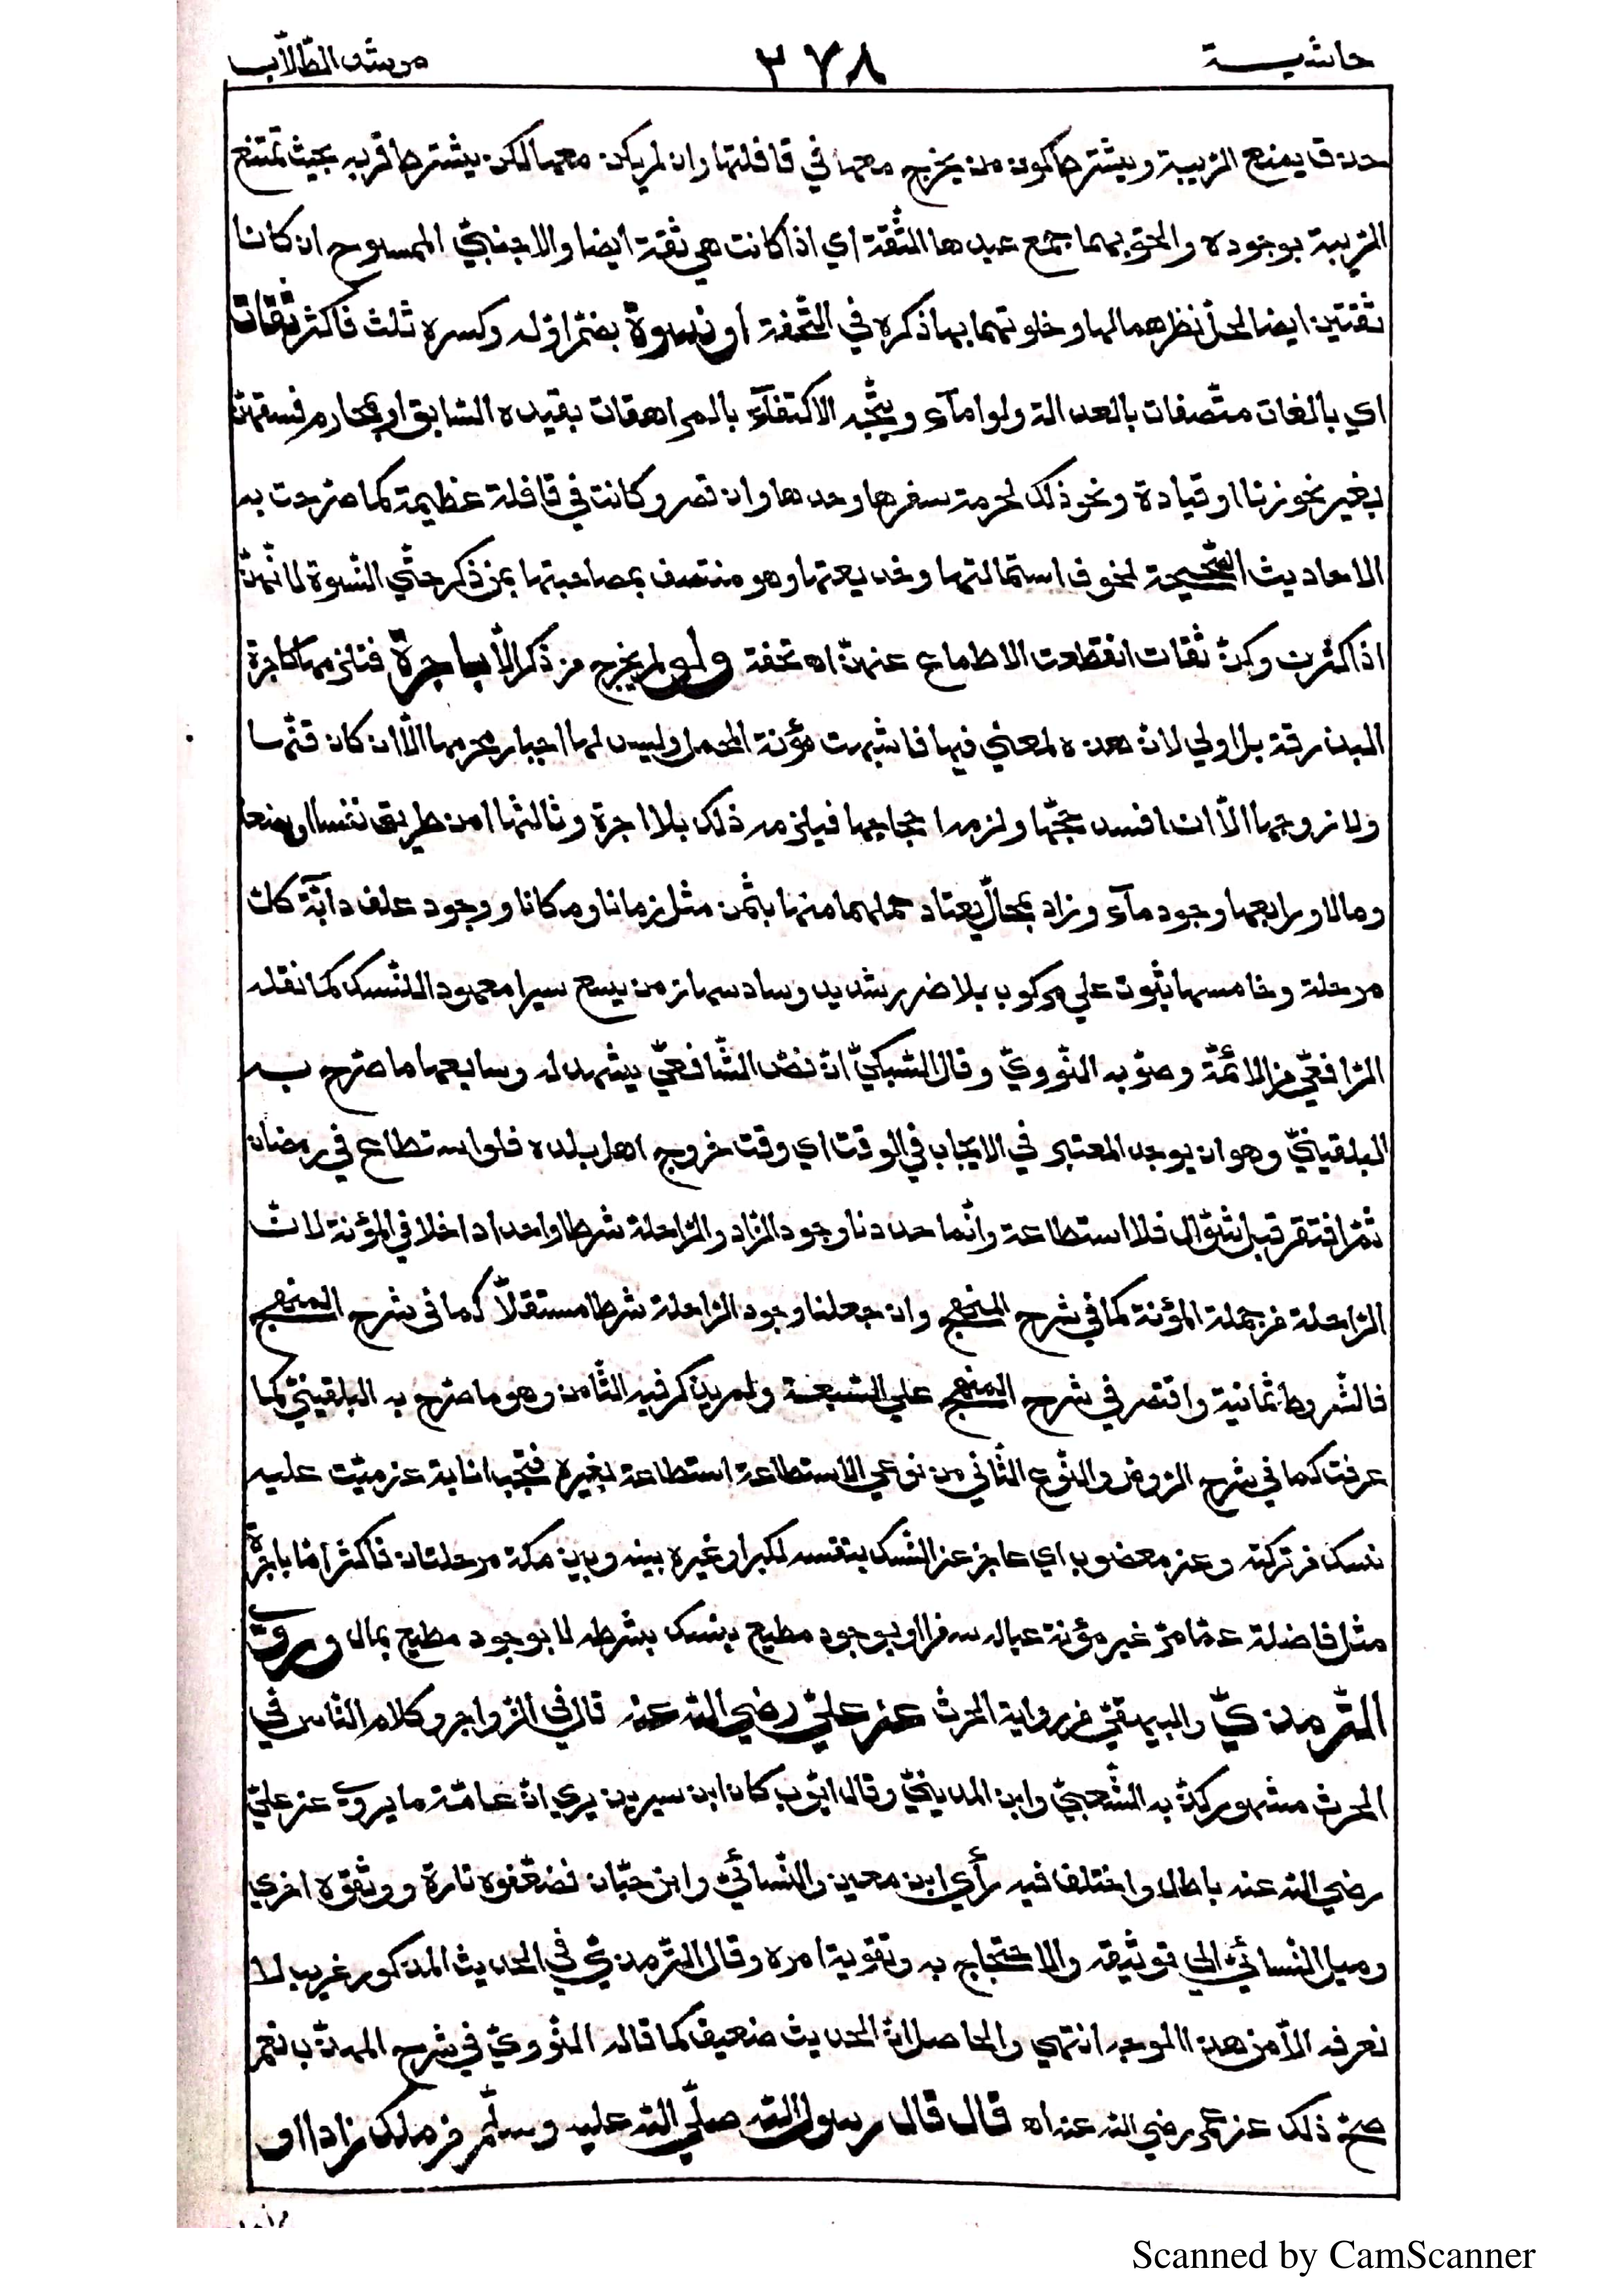 حاشية ٣٧٨ مرشد الطّلّاب
حذق يمنع الريبة ويشترط كون من يخرج معها في قافلتها وان لم يكن معها لكن يشترط قربه بحيث تمتنع
الريبة بوجوده والحق بهما جمع عبدها الثّقة اي اذا كانت هي ثقة ايضا والاجنبيّ الممسوح ان كانا
ثقتين ايضا لحلّ نظرهما لها وخلوتهما بها ذكره في التّحفة او نسوة بضمّ اوّله وكسره ثلث فاكثر ثقات
اي بالغات متّصفات بالعدالة ولو امآء ويتّجه الاكتفآء بالمراهقات بقيده السّابق او بمحارم فسقهنّ
بغير نحو زنا او قيادة ونحو ذلك لحرمة سفرها وحدها وان قصر وكانت في قافلة عظيمة كما صرّحت به
الاحاديث الصّحيحة لخوف استمالتها وخديعتها وهو منتف بمصاحبتها بمن ذكر حتّي النّسوة لانّهنّ
اذا كثرن وكنّ ثقات انقطعت الاطماع عنهنّ اه تحفة ولو لم يخرج من ذكر الّا باجرة فتلزمها كاجرة
البذرقة بل اولي لانّ هذه لمعني فيها فاشبهت مؤنة المحمل وليس لها اجبار محرمها الّا ان كان قنّها
ولا زوجها الّا ان افسد حجّها ولزمه احجاجها فيلزمه ذلك بلا اجرة وثالثها امن طريق نفسا وبضعا
ومالا ورابعها وجود مآء وزاد بمحالّ يعتاد حملهما منها بثمن مثل زمانا ومكانا ووجود علف دابّة كلّ
مرحلة وخامسها ثبوت علي مركوب بلا ضرر شديد وسادسها زمن يسع سيرا معهودا للنّسك كما نقله
الرّافعيّ من الائمّة وصوّبه النّوويّ وقال السّبكيّ انّ نصّ الشّافعيّ يشهد له وسابعها ما صرّح به
البلقينيّ وهو ان يوجد المعتبر في الايجاب في الوقت اي وقت خروج اهل بلده فلو استطاع في رمضان
ثمّ افتقر قبل شوّال فلا استطاعة وانّما عددنا وجود الزّاد والرّاحلة شرطا واحدا داخلا في المؤنة لانّ
الرّاحلة من جملة المؤنة كما في شرح المنهج وان جعلنا وجود الرّاحلة شرطا مستقلّا كما في شرح المنهج
فالشّروط ثمانية واقتصر في شرح المنهج علي السّبعة ولم يذكر فيه الثّامن وهو ما صرّح به البلقينيّ كما
عرفت كما في شرح الرّوض والنّوع الثّاني من نوعي الاستطاعة استطاعة بغيره فتجب انابة عن ميّت عليه
نسك من تركته وعن معضوب اي عاجز عن النّسك بنفسه لكبر او غيره بينه وبين مكة مرحلتان فاكثر امّا باجرة
مثل فاضلة عمّا مرّ غير مؤنة عياله سفرا او بوجود مطيع بنسك بشرطه لا بوجود مطيع بمال وروي
التّرمذيّ والبيهقيّ من رواية الحرث عن عليّ رضي الله عنه قال في الزّواجر وكلام النّاس في
الحرث مشهور كذّبه الشّعبيّ وابن المدينيّ وقال ايّوب كان ابن سيرين يري انّ عامّة ما يروي عن عليّ
رضي الله عنه باطل واختلف فيه رأي ابن معين والنّسائيّ وابن حبّان فضعّفوه تارة ووثّقوه اخري
وميل النّسائيّ الي توثيقه والاحتجاج به وتقوية امره وقال التّرمذيّ في الحديث المذكور غريب لا
نعرفه الّا من هذا الوجه انتهي والحاصل انّ الحديث ضعيف كما قاله النّوويّ في شرح المهذّب نعم
صحّ ذلك عن عمر رضي الله عنه اه قال قال رسول الله صلّي الله عليه وسلّم من ملك زادا او
Scanned by CamScanner